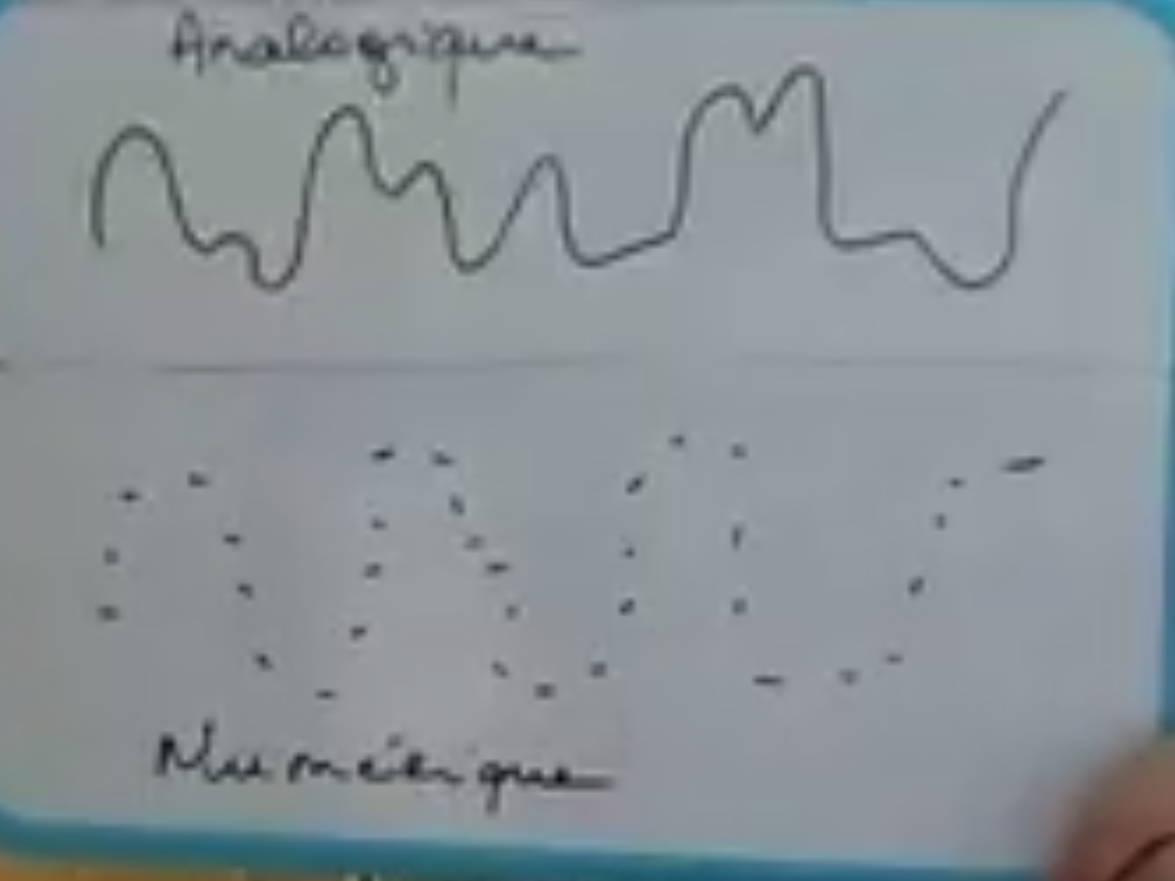 Analogique
Numérique